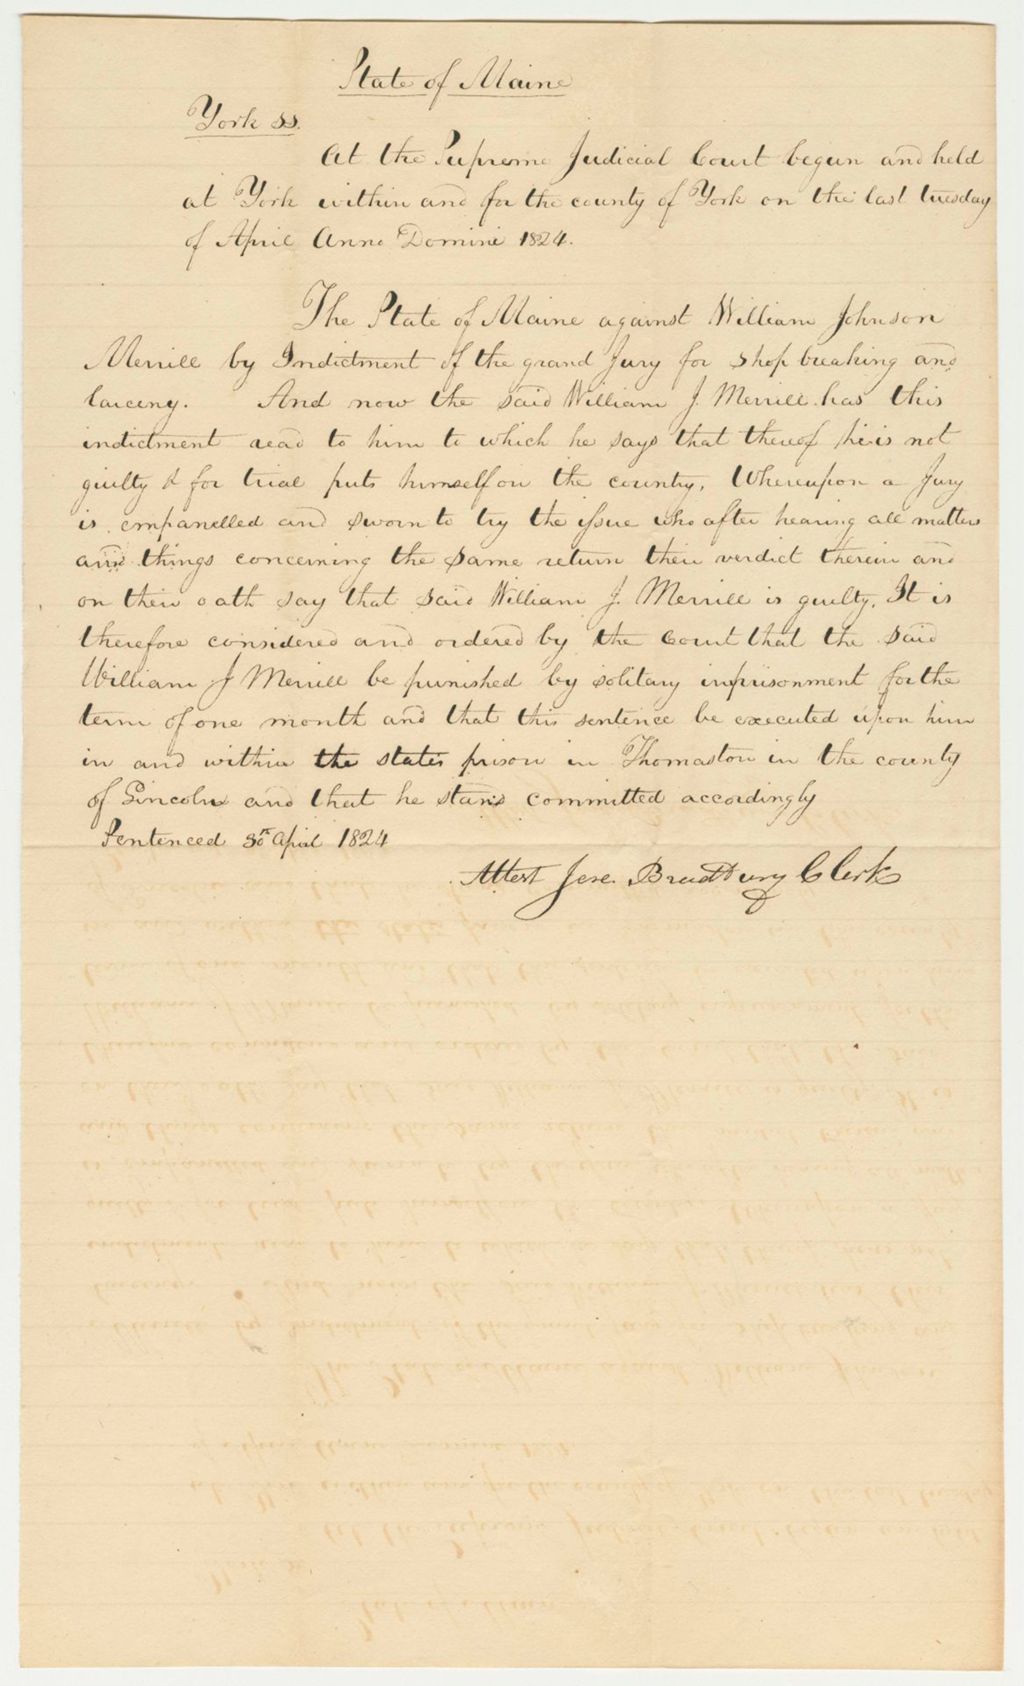 State of Maine
York ss.
At the Supreme Judicial Court begun and held
at York within and for the county of York on the last tuesday
of April Anno Domini 1824.
The State of Maine against William Johnson
Merrill by Indictment of the grand Jury for shop breaking and
larceny. And now the said William J. Merrill has this
indictment read to him to which he says that thereof he is not
guilty & for trial puts himself on the country. Whereupon a Jury
is empanelled and sworn to try the issue who after hearing all matters
and things concerning the same return their verdict therein and
on their oath say that said William J. Merrill is guilty. It is
therefore considered and ordered by the Court that the said
William J Merrill be punished by solitary imprisonment for the
term of one month and that this sentence be executed upon him
in and within the states prison in Thomaston in the county
of Lincoln and that he stand committed accordingly
Sentenced 30th April 1824
Attest Jere. Bradbury Clerk